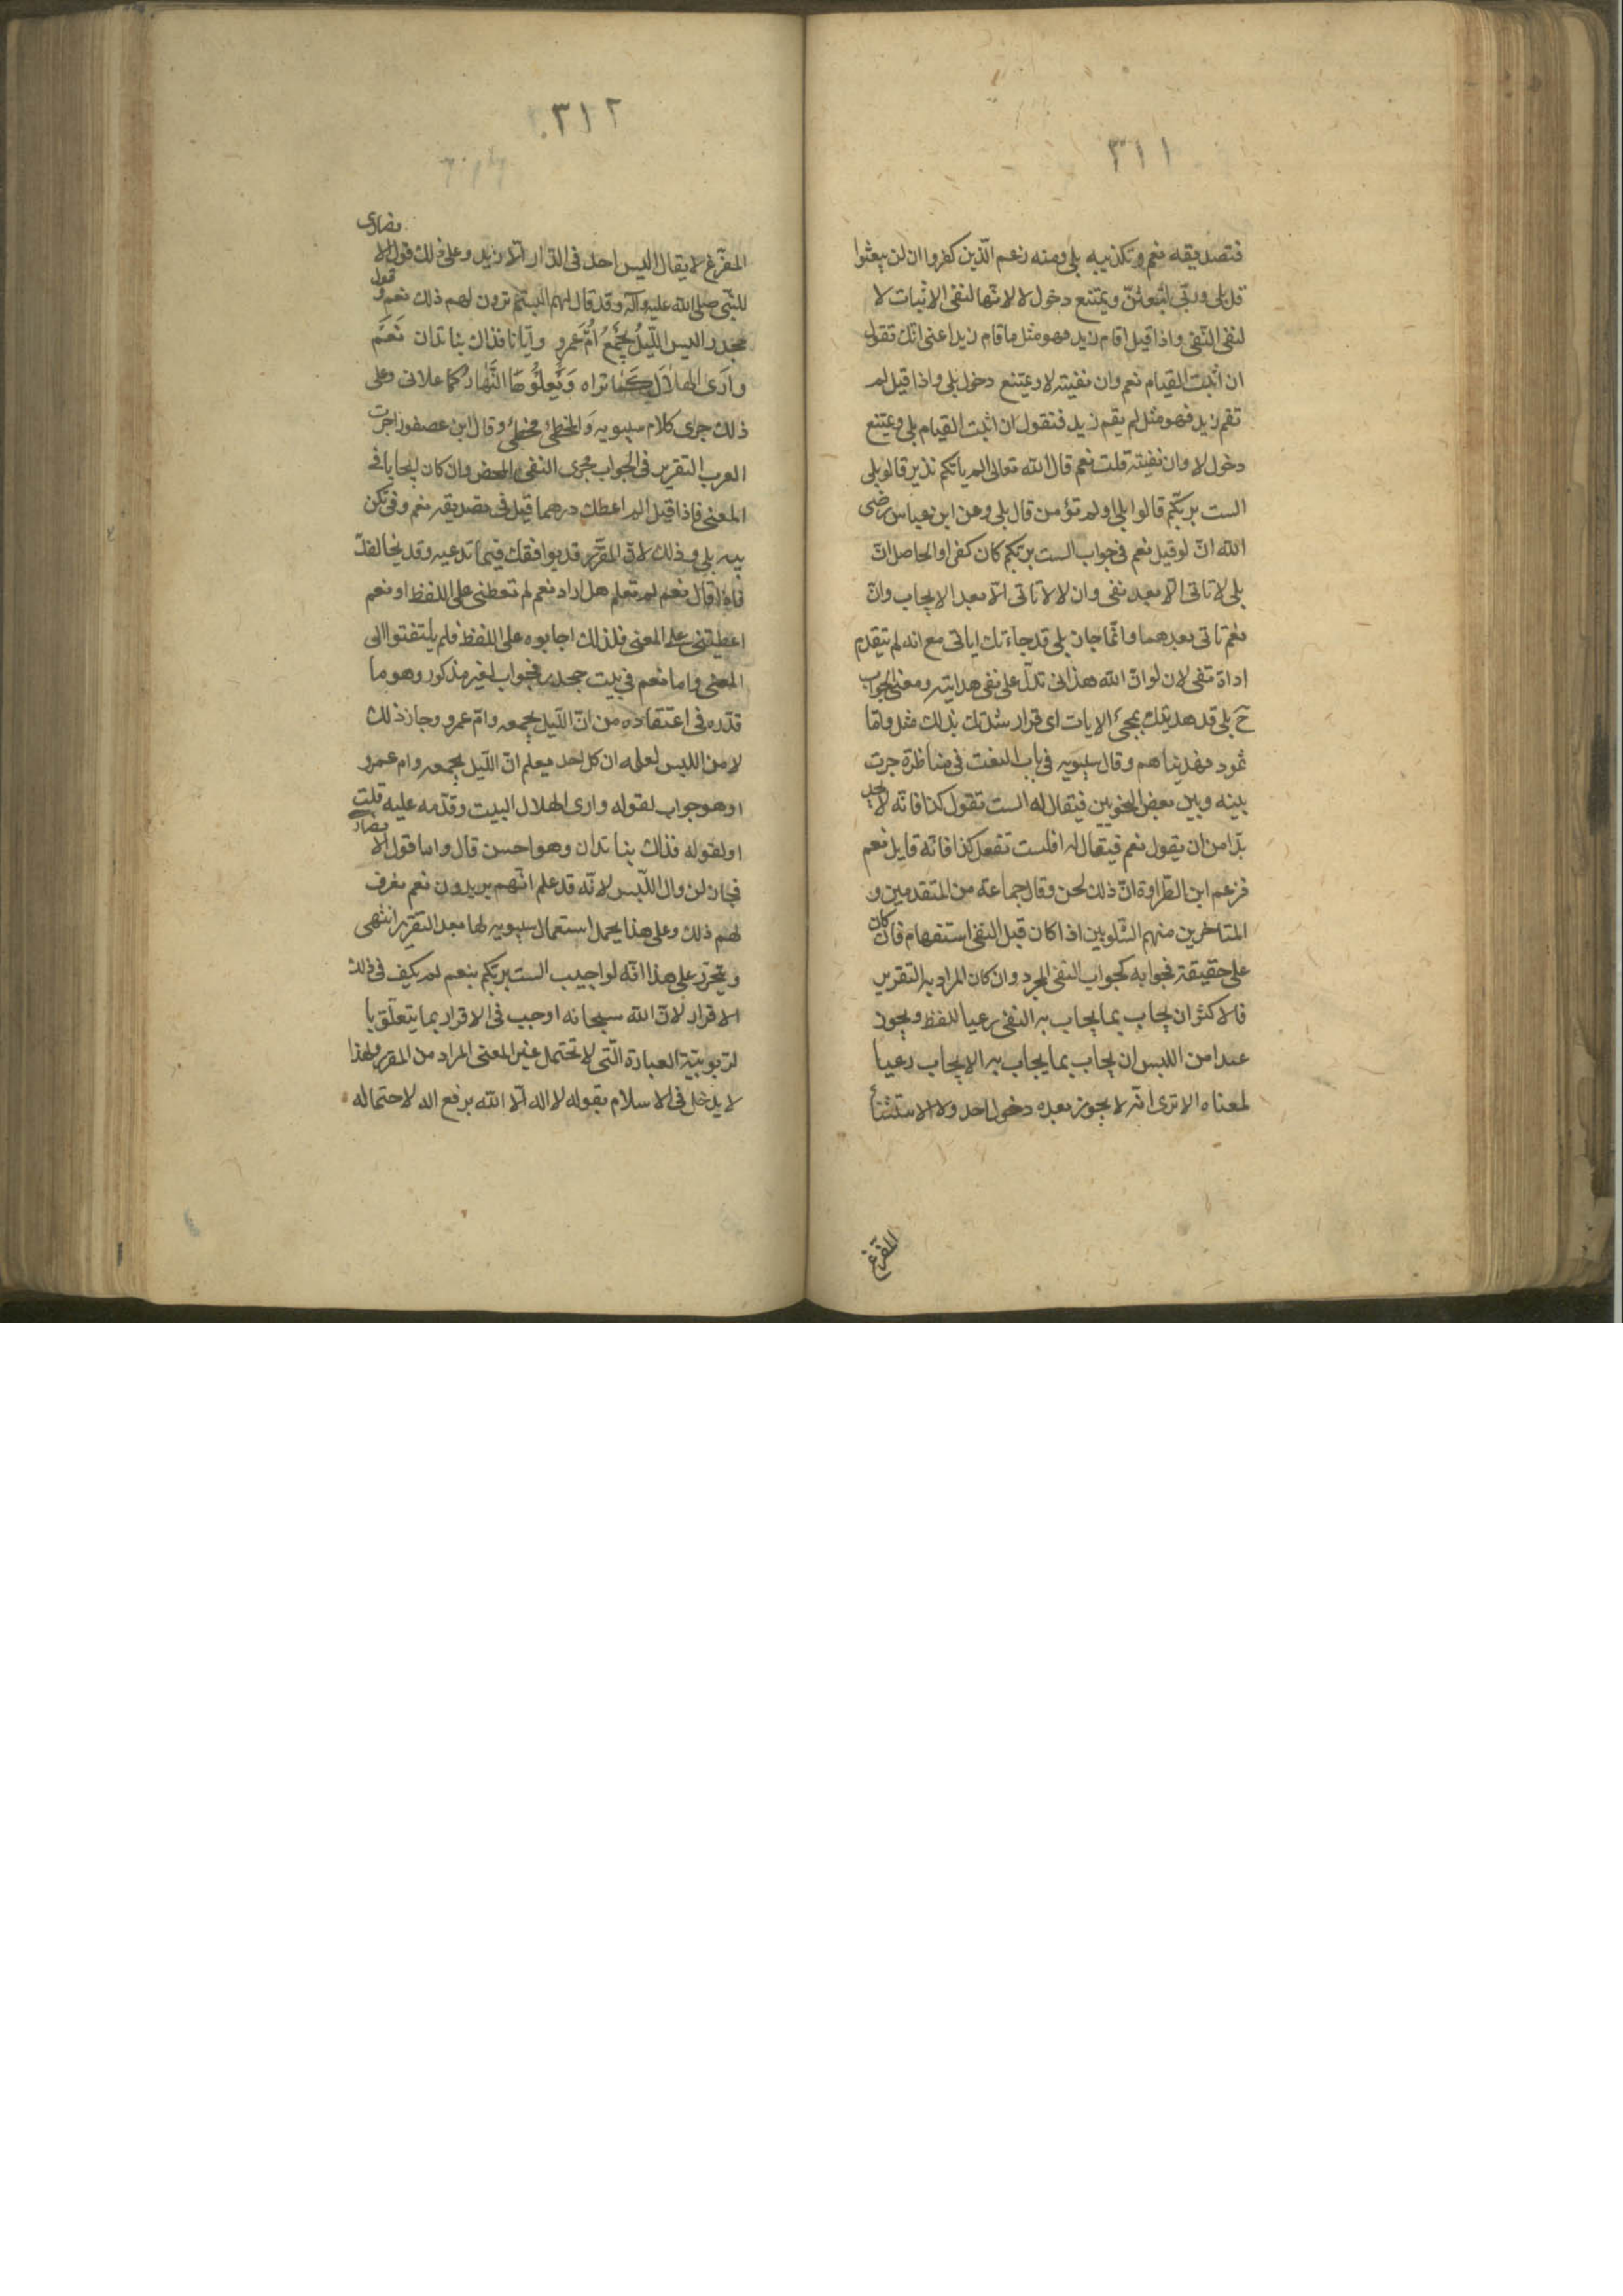 ٣١١
فتصديقه نعم وتكذيبه بلى ومنه زعم الّذين كفروا ان لن يبعثوا
قل بلى وربّى لتبعثنّ ويمتنع دخول لا لانّها لنفى الاثبات لا
لنفى النّفى واذا قيل اقام زيد فهو مثل ما قام زيد اعنى انّك تقول
ان اثبت القيام نعم وان نفيته لا ويمتنع دخول بلى واذا قيل لم
تقم زيد فهو مثل لم يقم زيد فتقول ان اثبت القيام بلى ويمتنع
دخول لا وان نفيته قلت نعم قال الله تعالى الم ياتكم نذير قالو بلى
الست بربّكم قالوا بلى اولم تؤمن قال بلى وعن ابن عباس رضى
الله انّ لو قيل نعم فى جواب الست بربكم كان كفرا والحاصل انّ
بلى لا تاتى الّا بعد نفى وان لا لا تاتى الّا بعد الايجاب وانّ
نعم تاتى بعدهما وانّما جان بلى قد جاءتك اياتى مع انه لم يتقدم
اداة تنفى لان لو انّ الله هذانى تدلّ على نفى هدايته ومعنى الجواب
حَ بلى قد هديتك بمجئ الايات اى قرار شدتك بذلك مثل وامّا
ثمود فهديناهم وقال سيبويه فى باب النعت فى مناظرة جرت
بينه وبين بعض النحويين فيقال له الست تقول كذا فانّه لا يجد
بدّا من ان يقول نعم فيقال له افلست تفعل كذا فانّه قايل نعم
فزعم ابن الطّراوة انّ ذلك لحن وقال جماعة من المتقدمين و
المتاخرين منهم الشّلوبين اذا كان قبل النفى استفهام فان كان
على حقيقته فجوابه كجواب النفى المجرد وان كان المراد به التقرير
فالاكثر ان يجاب بما يجاب به النفى رعيا للفظ ويجوز
عند امن اللبس ان يجاب بما يجاب به الايجاب رعيا
لمعناه الا ترى انّه لا يجوز بعده دخول احد ولا الاستثنأ
المفرّغ
٣١٢
المفرّغ لا يقال اليس احد فى الدّار الّا زيد وعلى ذلك قول الانصارى
للنّبى صلى الله عليه وآله وقد قال لهم الستم ترون لهم ذلك نعم وقول
جحدر اليس اللّيلُ يجمَعُ اُمَّ عَمرٍو وايّانا فذاك بنا تدان نَعَمَ
وارَى الهلالَ كما تراه وَيَعلُوهَا النَّهار كما علانى وعلى
ذلك جرى كلام سيبويه وَالمخطئ مخطئ وقال ابن عصفور اجرت
العرب التقرير فى الجواب مجرى النفى المحض وان كان ايجابا فى
المعنى فاذا قيل الم اعطك درهما قيل فى تصديقه نعم وفى تكن
يبه بلى وذلك لانّ المقرّر قد يوافقك فيما تدعيه وقد يخالفك
فاذا قال نعم لم تعلم هل اراد نعم لم تعطنى على اللفظ او نعم
اعطيتنى على المعنى فلذلك اجابوه على اللفظ فلم يلتفتوا الى
المعنى واما نعم فى بيت جحدر فجواب لغير مذكور وهو ما
قدّره فى اعتقاده من انّ اللّيل يجمعه وامّ عمرو وجاز ذلك
لامن اللبس لعلمه ان كل احد يعلم انّ اللّيل يجمعه وام عمرو
اوهو جواب لقوله وارى الهلال البيت وقدّمه عليه قلت
او لقوله فذاك بنا تدان وهو احسن قال واما قول الانصار
فجاز لزوال اللّبس لانّه قد علم انّهم يريدون نعم نعرف
لهم ذلك وعلى هذا يحمل استعمال سيبويه لها بعد التقرير انتهى
ويتحرّر على هذا انّه لو اجيب الست بربّكم بنعم لم يكف فى ذلك
الاقرار لانّ الله سبحانه اوجب فى الاقرار بما يتعلّق با
لربوبيّة العبادة الّتى لا تحتمل غير المعنى المراد من المقر ولهذا
لا يدخل فى الاسلام بقوله لا اله الّا الله برفع اله لاحتماله